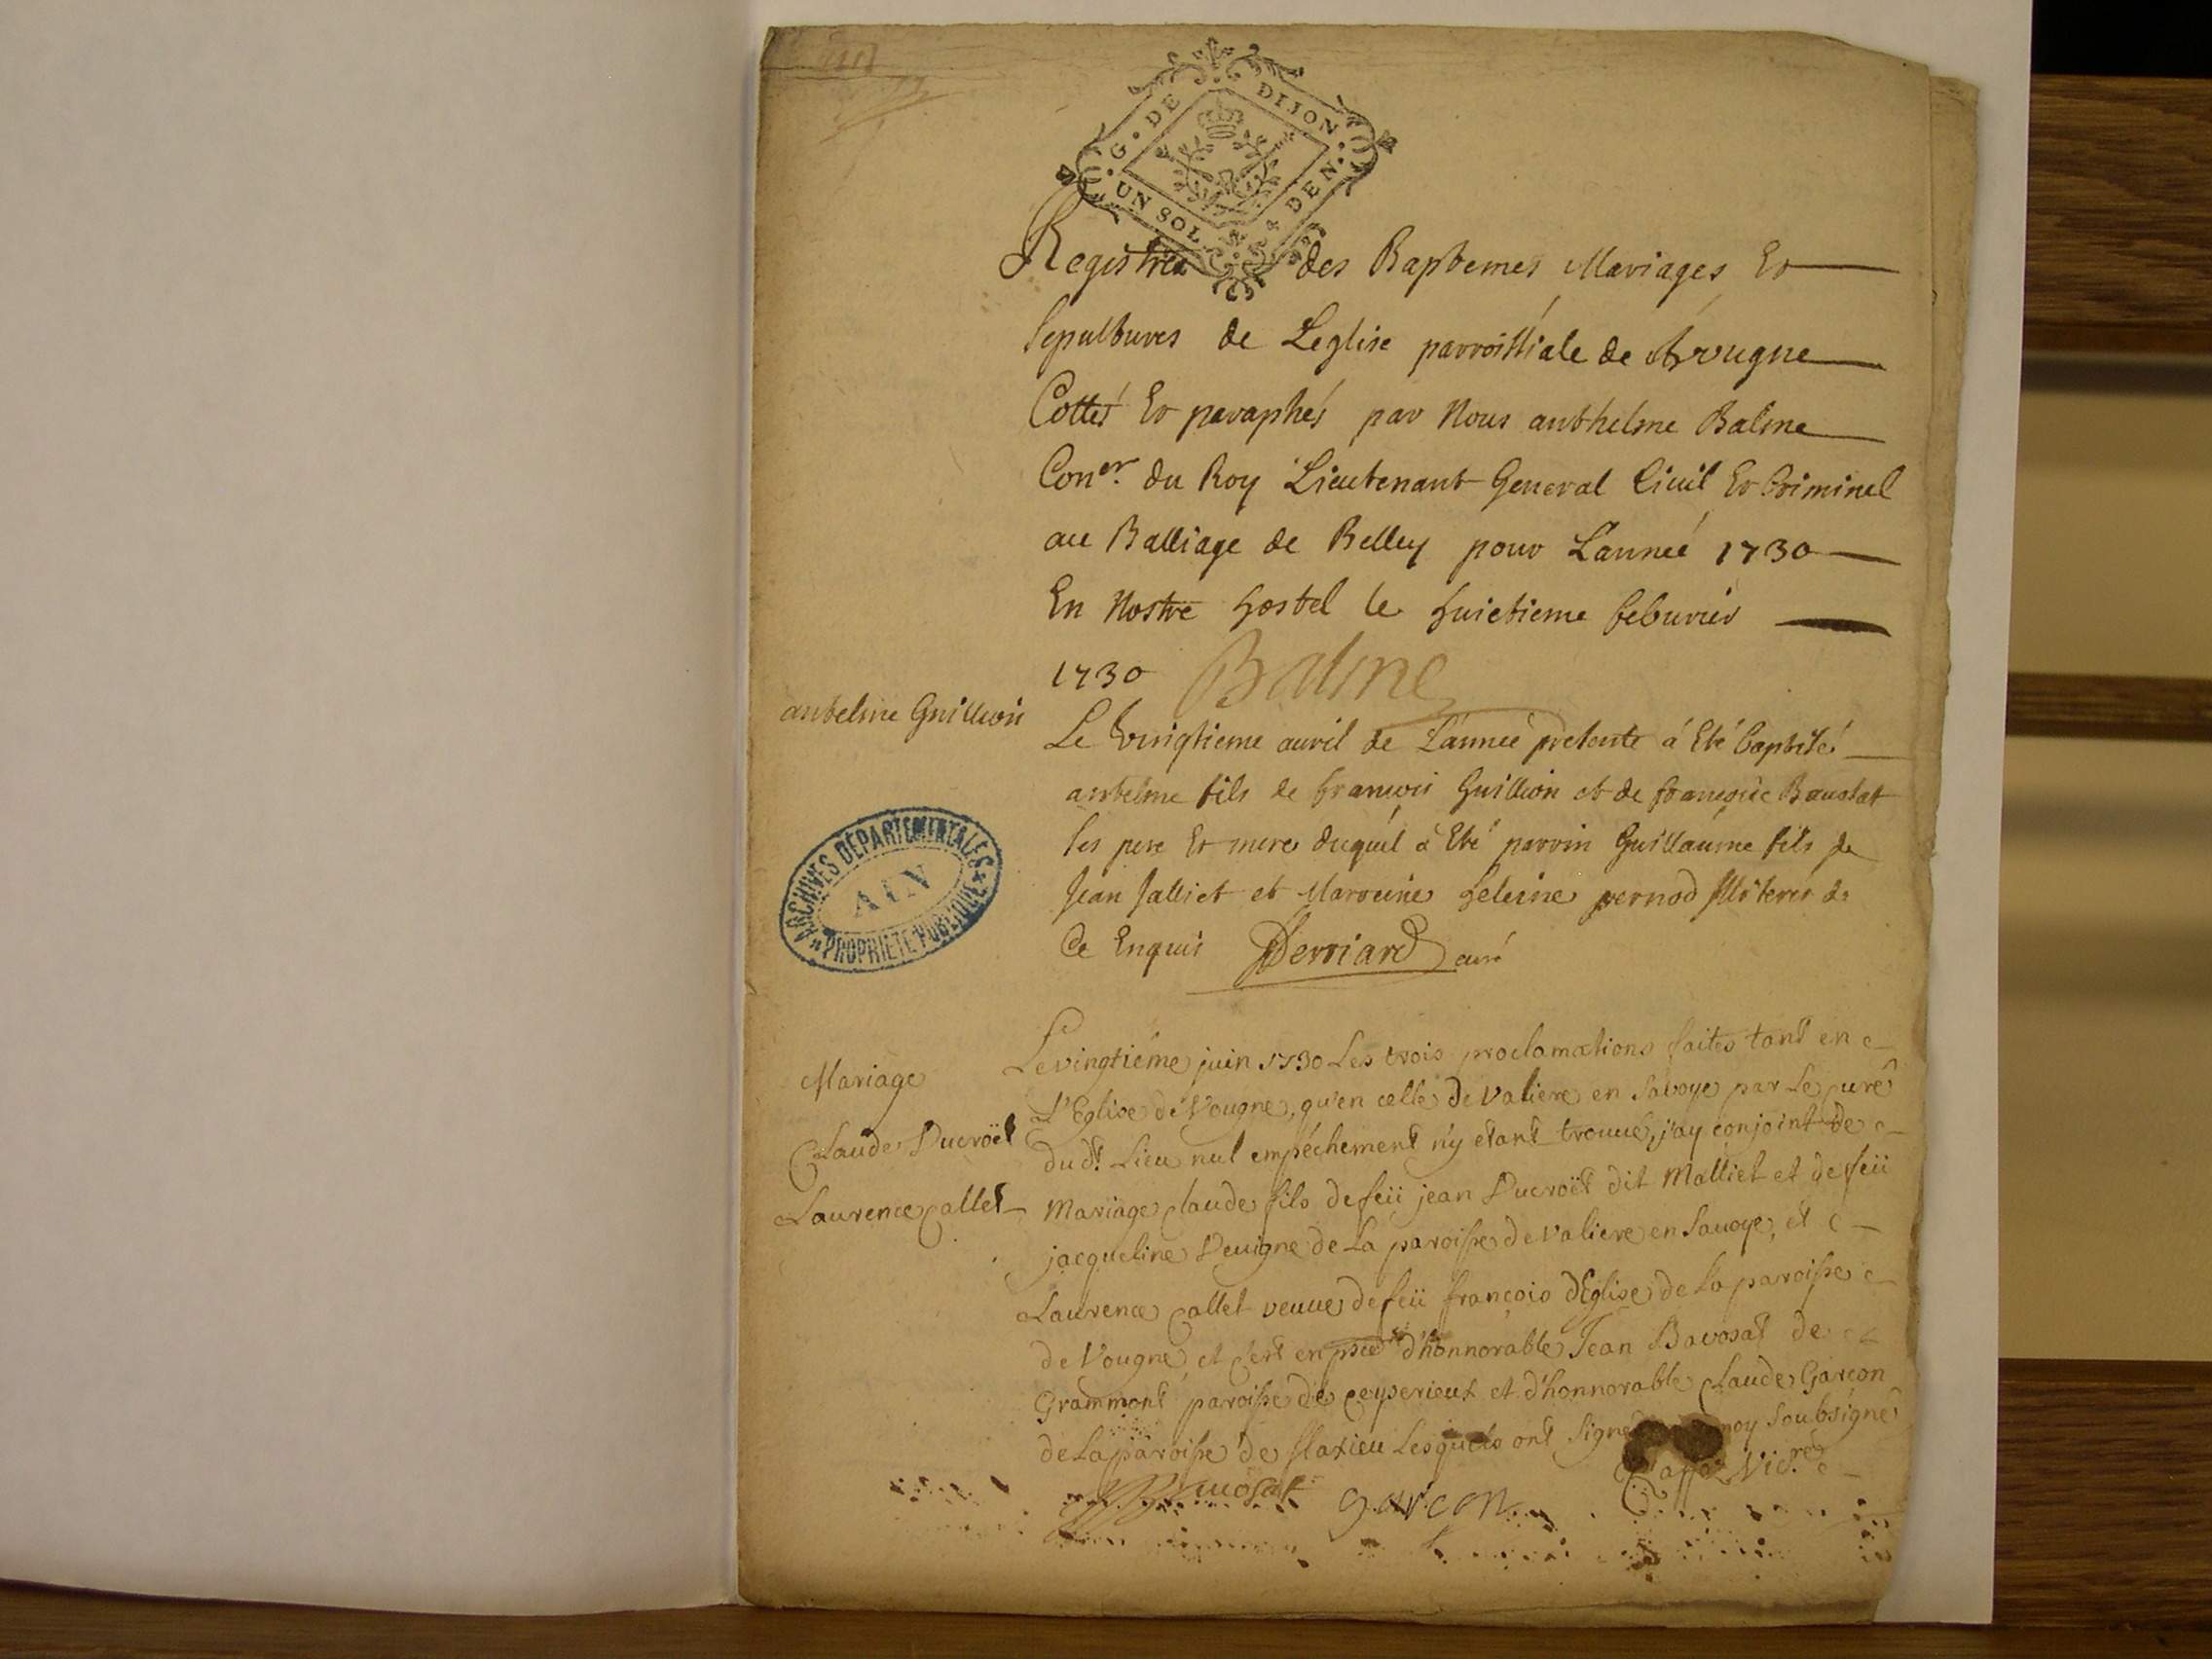 G. DE DIJON
UN SOL 4 DEN.
Registres des Baptemes Mariages Et
Sepultures de Leglise parroissiale de Vougne
Cottes Et paraphés par Nous anthelme Balme
Coner. du Roy Lieutenant General Civil Et Criminel
au Balliage de Belley pour L'année 1730
En Nostre hostel le huictieme febvrier
1730 Balme
antelme Guillion
Le vingtieme avril de L'année presente á Eté baptisé
antelme fils de francois Guillion et de francoise
ses pere Et mere duquel á Eté parrin Guillaume fils de
Jean Jalliet et Marreine heleine pernod Illiterés de
Ce Enquis Derriard curé
ARCHIVES DEPARTEMENTALES
AIN
PROPRIETE PUBLIQUE
Mariage
Claude Ducroët
Laurence Callet
Le vingtiéme juin 1730 Les trois proclamations faites tant en
L'Eglise de Vougne, qu'en celle de Valiere en Savoye par Le curé
dudt. Lieu nul empéchement n'y etant trouué, j'ay conjoint de
Mariage claude fils de feü jean Ducroët dit Malliet et de feü
jacqueline Deuigne de La paroisse de Valiere en Sauoye, et
Laurence Callet veuue de feü françois dEglise de La paroisse
de Vougne et c'est en d'honnorable Jean Bavosat de
Grammont paroisse de Ceyserieux et d'honnorable Claude Garcon
de La paroisse de flaxieu Lesquels ont signé moy Soubsigné
Vic.re
Bauosat garcon